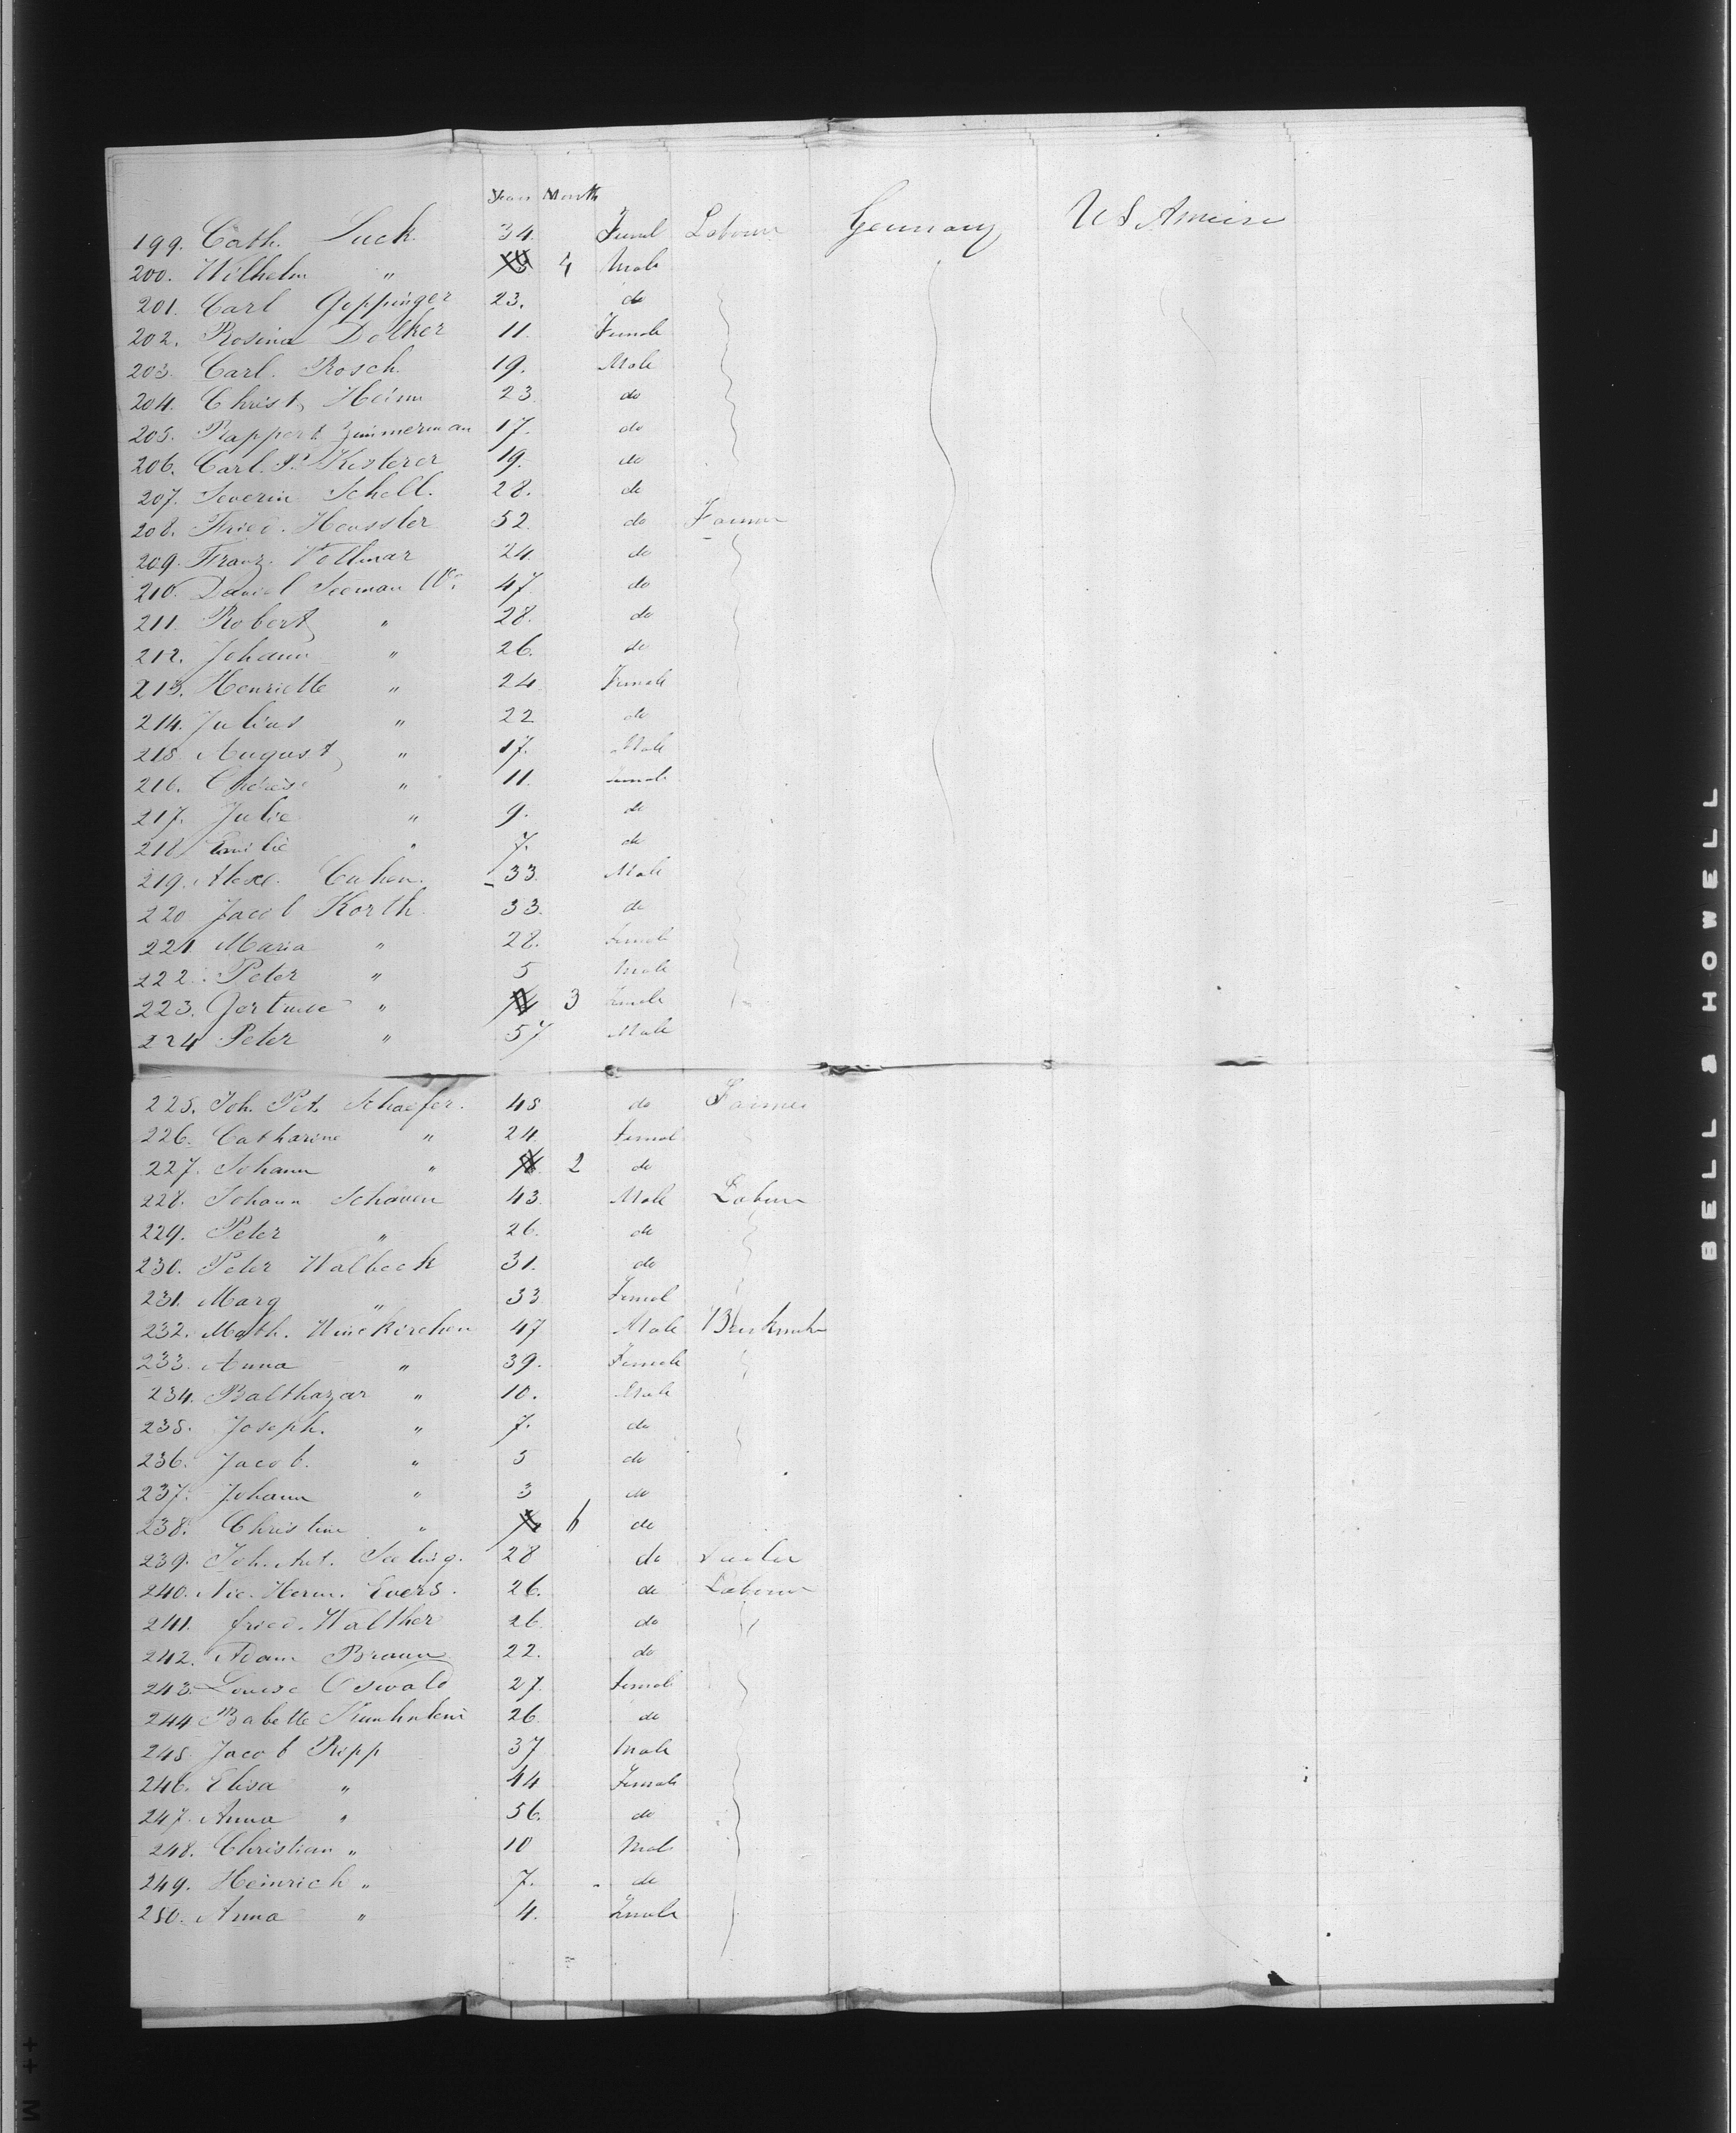 Years Month
199. Cath. Luck. 34. Femal Labour Germany US America
200. Wilhelm " 4 Male
201. Carl Goppinger 23. do
202. Rosina Dolker 11. Female
203. Carl Rosch 19. Male
204. Christ Heim 23 do
205. Rappert Zimmerman 17. do
206. Carl. P. Kesterer 19. do
207. Severin Schell. 28. do
208. Fried. Heussler 52. do Farmer
209. Franz. Vollmar 24. do
210. Daniel Seeman 47. do
211. Robert " 28. do
212. Johann " 26. do
213. Henriette " 24 Female
214. Julius " 22 do
215 August " 17. Male
216. " 11. Female
217. Julie " 9. do
218. Emilie " 7. do
219. Alex. Cuhen. 33. Male
220 Jacob Korth. 33. do
221 Maria " 28. Femal
222. Peter " 5 Male
223. Gertrude " 3 Female
224 Peter " 57 Male
225. Joh. Pet. Schaefer. 45 do Farmer
226. Catharine " 24. Femal
227. Johann " 2 do
228. Johann Schaven 43. Male Labour
229. Peter " 26. do
230. Peter Walbeck 31. do
231. Marg " 33 Femal
232. Math. Winekirchen 47 Male
233. Anna " 39. Female
234. Balthazar " 10. Male
235. Joseph. " 7. do
236. Jacob. " 5 do
237. Johann " 3 do
238. Christine " 6 do
239. Joh. Ant. Seeling. 28 do
240. Nic. Herm. Evers. 26. do Labour
241. Fried. Walther 26 do
242. Adam Braun 22. do
243. Louise Oswald 27. Femal
244 Babette 26. do
245. Jacob Ripp 37 Male
246. Elisa " 44 Female
247. Anna " 56. do
248. Christian " 10 Male
249. Heinrich " 7. do
250. Anna " 4. Female
BELL & HOWELL